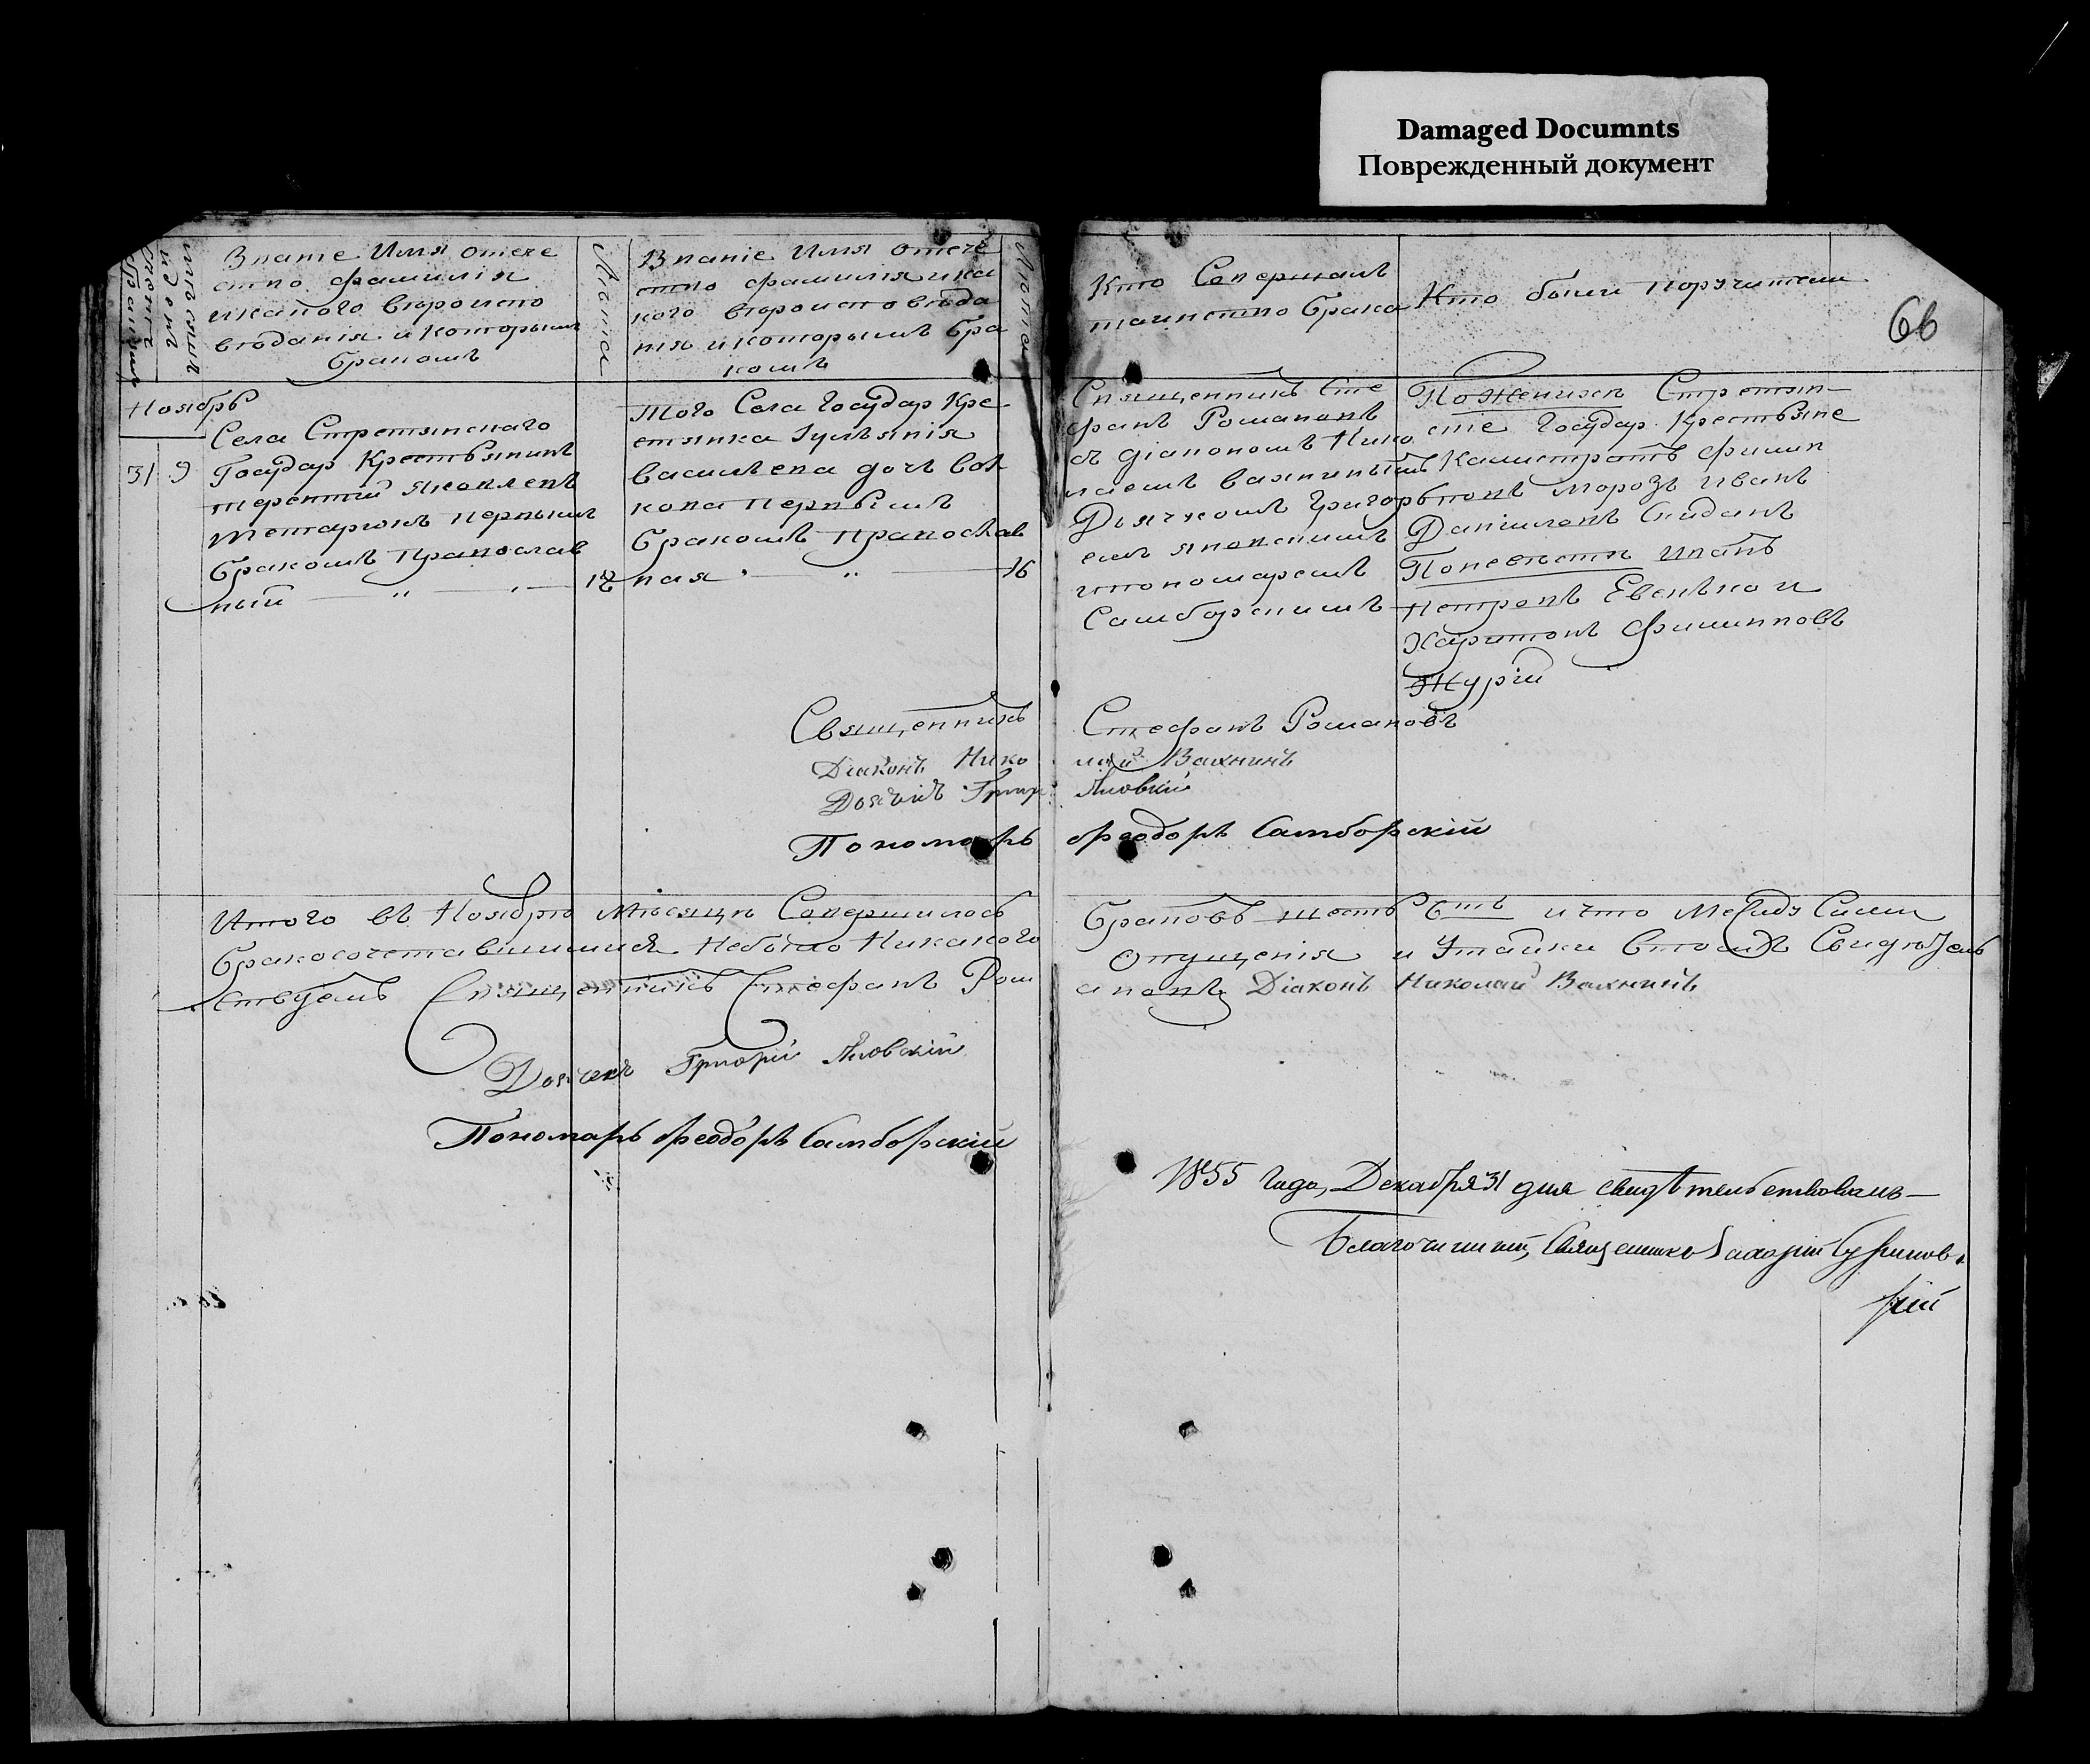 Damaged Documnts
Поврежденный документ
66
Званіе Имя отече
ство фамилія
и какого вѣроиспо
вѣданія и которымъ
бракомъ
Лѣта
Званіе Имя отече
ство фамилія и ка
кого вѣроисповѣда
нія и которымъ бра
комъ
Лѣта
Кто Совершалъ
таинство брака
Кто были поручители
Ноябрь
31 9
Села Стретынскаго
Государ Крестьянинъ
терентій Яковлевъ
первымъ
бракомъ православ
ный
того Села Государ Кре
стянка Іуліянія
василіева дочь вол
кова первымъ
бракомъ православ
ная
16
Священникъ Сте
фанъ Романовъ
съ діакономъ Нико
лаемъ вахнинымъ
Дьячкомъ Григорь
емъ яновскимъ
и пономаремъ
Самборскимъ
По Женихѣ Стретян
скіе Государ. Крестьяне
Калистратъ филип
повъ морозъ Иванъ
Даніиловъ
По невѣстѣ Иванъ
петровъ Евенко и
Харитонъ Филипповъ
Священникъ Стефанъ Романовъ
Діаконъ Николай Вахнинъ
Дьячекъ Григор: Яновскій
Пономарь Феодоръ Самборскій
Итого въ Ноябрѣ Мѣсяцѣ Совершилось браковъ шесть 6ть и что Между Сими
бракосочетавшимися Небыло Никакого опущенія и Утайки втомъ Свидѣтель
ствуемъ Священникъ Стефанъ Романовъ Діаконъ Николай Вахнинъ
Дьячекъ Григорій Яновскій
Пономарь Феодоръ Самборскій
1855 года, Декабря 31 дня свидѣтельствовалъ
Благочинный, Священникъ